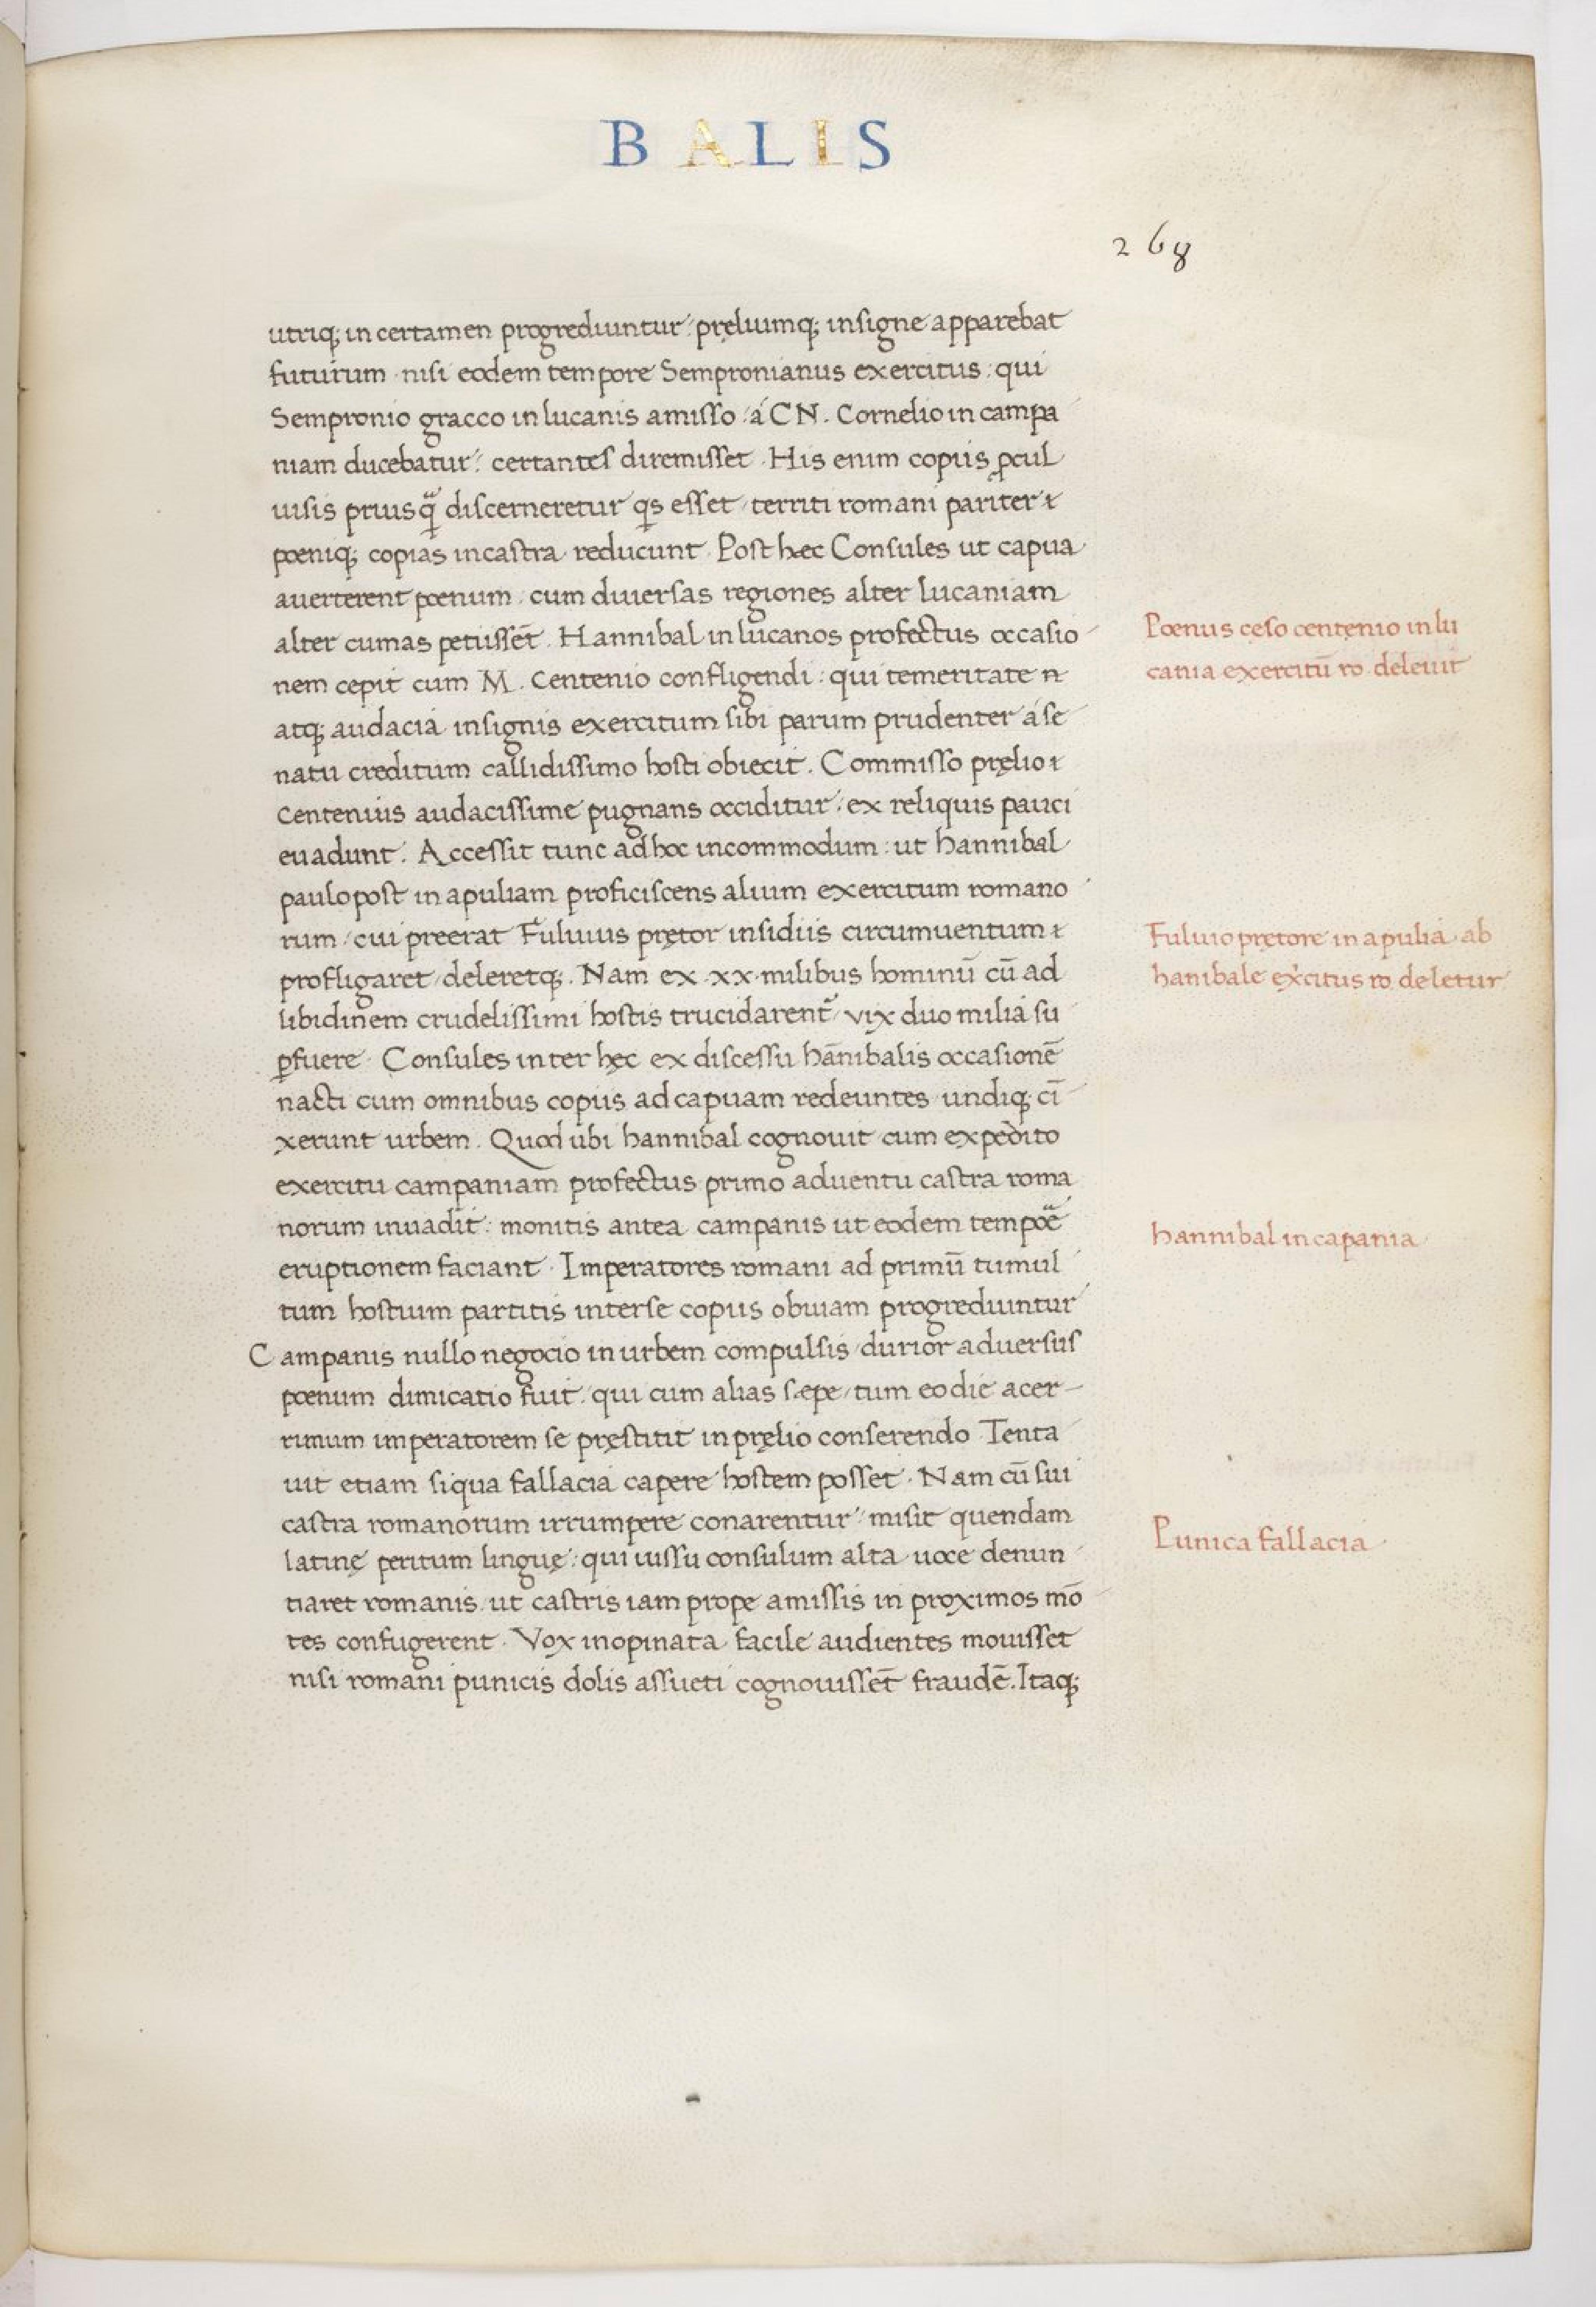 BALIS
268
utriq; in certamen progrediuntur: pręliumq; insigne apparebat
futurum nisi eodem tempore Sempronianus exercitus: qui
Sempronio gracco in lucanis amisso á CN. Cornelio in campa
niam ducebatur: certantes diremisset. His enim copiis ꝓcul
uisis priusꝗᷓ discerneretur qs esset, territi romani pariter &
pœniq; copias in castra reducunt. Post hæc Consules ut capua
auerterent pœnum: cum diuersas regiones alter lucaniam
alter cumas petiissēt. Hannibal in lucanos profectus occasio
nem cepit cum M. Centenio confligendi: qui temeritate
atq; audacia insignis exercitum sibi parum prudenter á se
natu creditum callidissimo hosti obiecit. Commisso pręlio &
Centenius audacissime pugnans occiditur: ex reliquis pauci
euadunt. Accessit tunc ad hoc incommodum: ut hannibal
paulo post in apuliam proficiscens alium exercitum romano
rum, cui preerat Fuluius pretor insidiis circumuentum &
profligaret, deleretq;. Nam ex .xx. milibus hominū cū ad
libidinem crudelissimi hostis trucidarent᷑, vix duo milia su
ꝑfuere. Consules inter hęc ex discessu hānibalis occasionē
nacti cum omnibus copiis ad capuam redeuntes undiq; cī
xerunt urbem. Quod ubi hannibal cognouit cum expedito
exercitu campaniam profectus primo aduentu castra roma
norum inuadit: monitis antea campanis ut eodem tempoē
eruptionem faciant. Imperatores romani ad primū tumul
tum hostium partitis inter se copiis obuiam progrediuntur
Campanis nullo negocio in urbem compulsis, durior aduersus
pœnum dimicatio fuit: qui cum alias sæpe, tum eo die acer-
rimum imperatorem se pręstitit in pręlio conserendo. Tenta
uit etiam siqua fallacia capere hostem posset. Nam cū sui
castra romanorum irrumpere conarentur: misit quendam
latinę peritum linguę: qui iussu consulum alta uoce denun
tiaret romanis ut castris iam prope amissis in proximos mō
tes confugerent. Vox inopinata facile audientes mouisset
nisi romani punicis dolis assueti cognouissēt fraudē. Itaq;
Pœnus ceso centenio in lu
cania exercitū ro. deleuit
Fuluio pretore in apulia ab
hanibale ex'citus ro. deletur
hannibal in capania
Punica fallacia